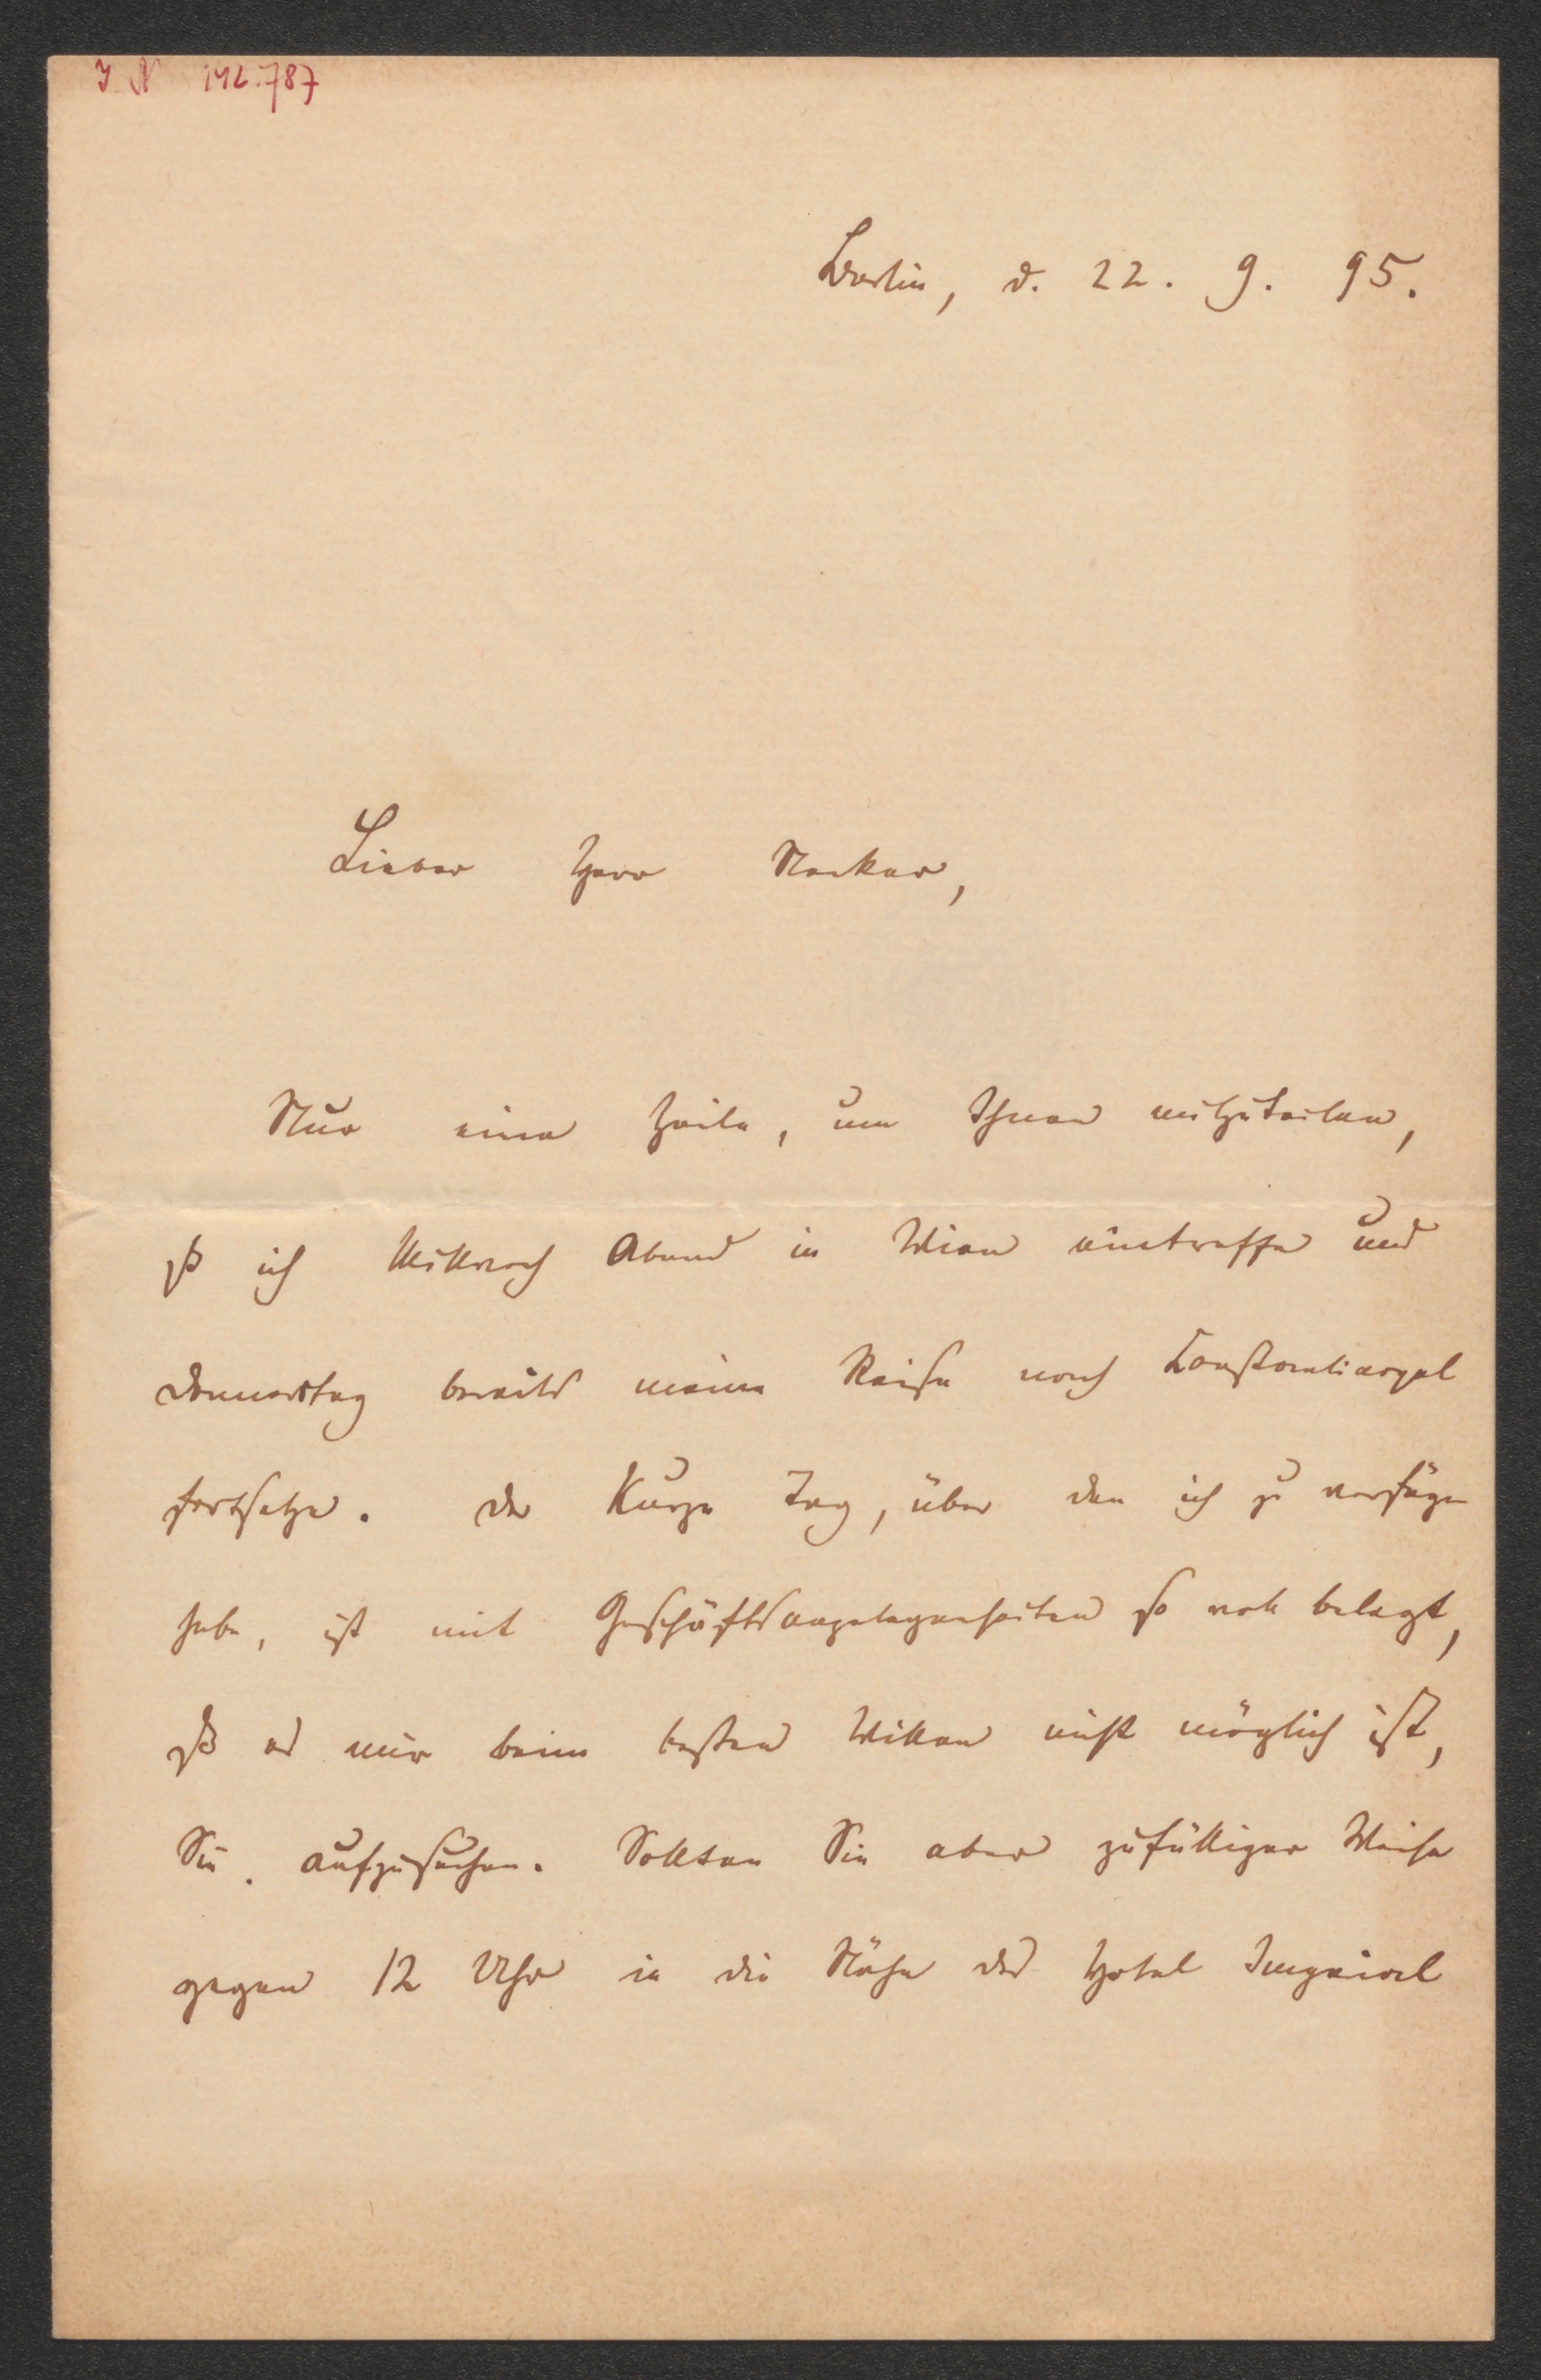 I. N 142.787
Berlin, d. 22. 9. 95.
Lieber Herr Necker,
Nur eine Zeile, um Ihnen mitzuteilen,
ß ich Mittwoch Abend in Wien eintreffe und
Donnerstag bereits meine Reise nach Constantinopel
fortsetze. Der kurze Tag, über den ich zu verfügen
habe, ist mit Geschäftsangelegenheiten so voll belegt,
ß es mir beim besten Willen nicht möglich ist,
Sie aufzusuchen. Sollten Sie aber zufälliger Weise
gegen 12 Uhr in die Nähe des Hotel Imperial